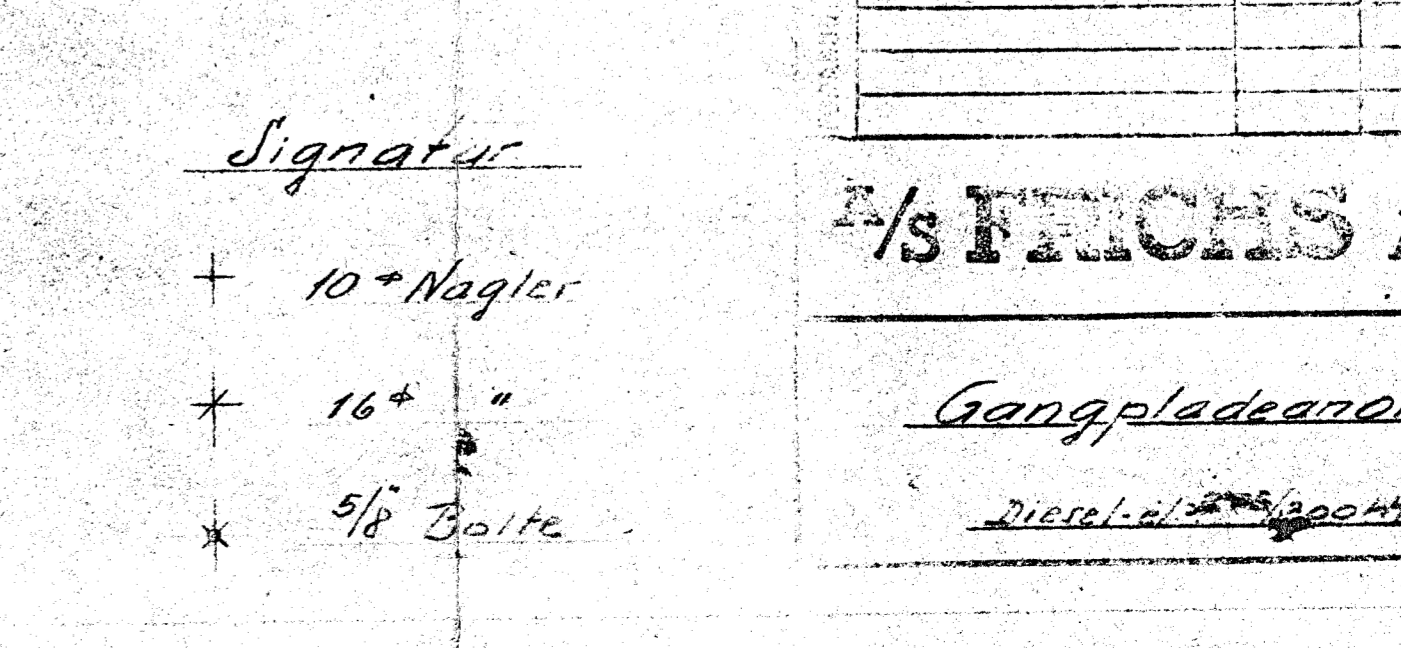 Signatur
10 ⌀ Nagler
16 ⌀ "
5/8" Bolte
A/S FRICHS
Gangpladeano
Diesel-el. /200 H